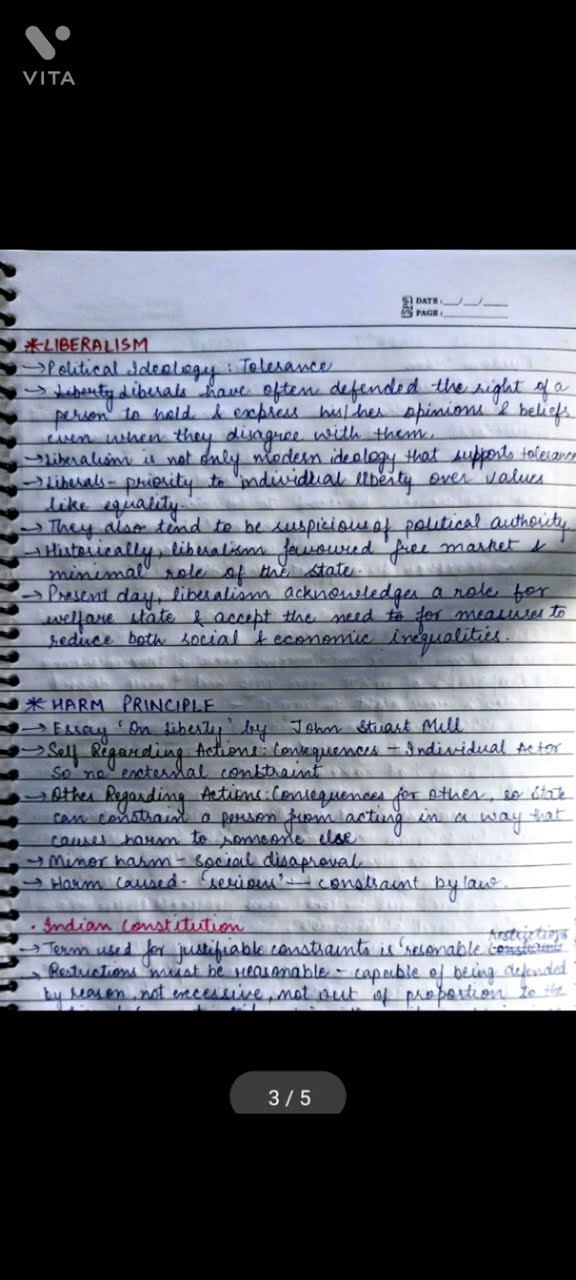 VITA
DATE: __/__/__
PAGE:
*LIBERALISM
→Political Ideology : Tolerance
→ Liberty Liberals have often defended the right of a
person to hold & express his/her opinions & beliefs
even when they disagree with them.
→Liberalism is not only modern ideology that supports tolerance
→Liberals - priority to individual liberty over values
like equality.
→They also tend to be suspicious of political authority
→Historically, liberalism favoured free market &
minimal role of the state.
→Present day, liberalism acknowledges a role for
welfare state & accept the need to for measures to
reduce both social & economic inequalities.
* HARM PRINCIPLE
→ Essay 'On Liberty' by John Stuart Mill
→Self Regarding Actions: Consequences - Individual Actor
So no external constraint
→ Other Regarding Actions: Consequences for other, so state
can constraint a person from acting in a way that
causes harm to someone else
→ Minor harm - social disaproval
→ Harm caused - 'serious' - constraint by law.
• Indian Constitution
→ Term used for justifiable constraints is 'resonable constraints restrictions
→ Restructions must be reasonable - capable of being defended
by reason, not excessive, not out of proportion to the
3 / 5